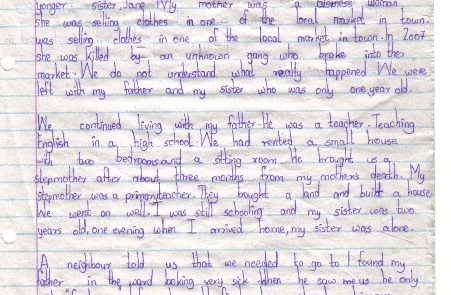 yonger sister, Jane. My mother was a dispness woman
she was selling clothes in one of the local market in town.
was selling clothes in one of the local market in town. In 2007
she was killed by an unknown gang who broke into ther
market. We do not understand what really happened. We were
left with my father and my sister who was only one year old.
We continued living with my father. He was a teacher. Teaching
English in a high school. We had rented a small house
with two bedrooms and a sitting room. He brought us a
stepmother after about three months from my mother's death. My
stepmother was a primary teacher. They bought a land and built a house
We went on well. I was still schooling and my sister was two
years old, one evening when I arrived home, my sister was alone.
A neighbour told us that we needed to go to I found my
father in the ward looking very sick. When he saw me us he only